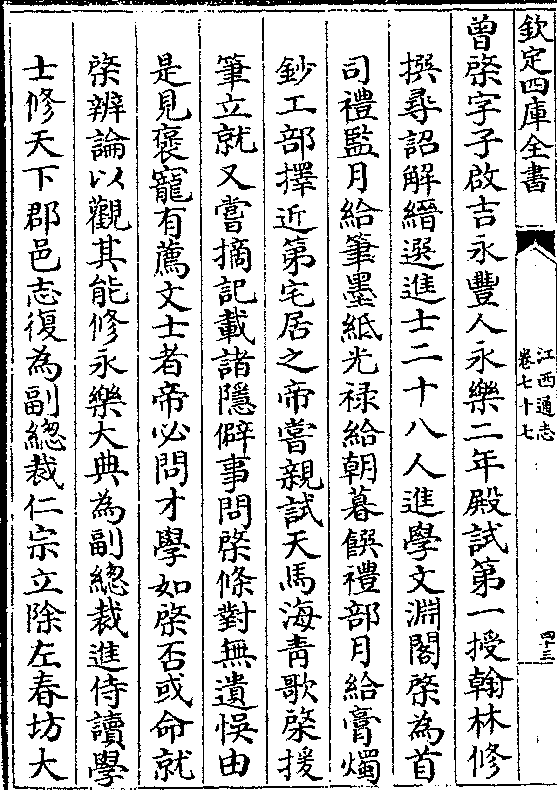 欽定四庫全書
江西通志
卷七十七
四十三
曾棨字子啟吉永豐人永樂二年殿試第一授翰林修
撰尋詔解縉選進士二十八人進學文淵閣棨為首
司禮監月給筆墨紙光禄給朝暮饌禮部月給膏燭
鈔工部擇近第宅居之帝嘗親試天馬海青歌棨援
筆立就又嘗摘記載諸隱僻事問棨條對無遺悞由
是見褒寵有薦文士者帝必問才學如棨否或命就
棨辨論以觀其能修永樂大典為副總裁進侍讀學
士修天下郡邑志復為副總裁仁宗立除左春坊大